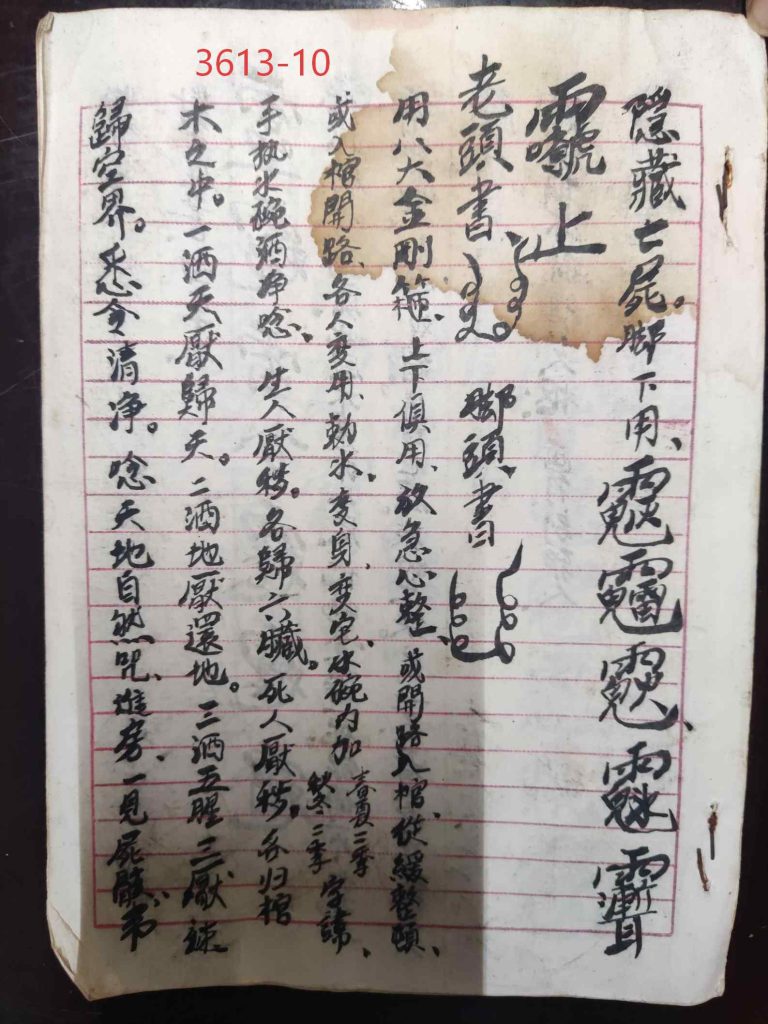 3613-10
隐藏亡屍。脚下用、
上
老頭書、脚頭書
用八大金剛箍、上下傎用、放急心整、或開路入棺、從緩整頤、
或入棺開路、各人变用、勅水。变身、变宅、水碗内加 春夏二季 秋冬二季 字諱、
手执水碗洒净唸、生人厭穢。各歸六臟。死人厭穢。各归棺
木之中。一洒天厭歸天。二洒地厭還地。三洒五腥三厭速
歸空界。悉令清净。唸天地自然咒、進旁、一見屍